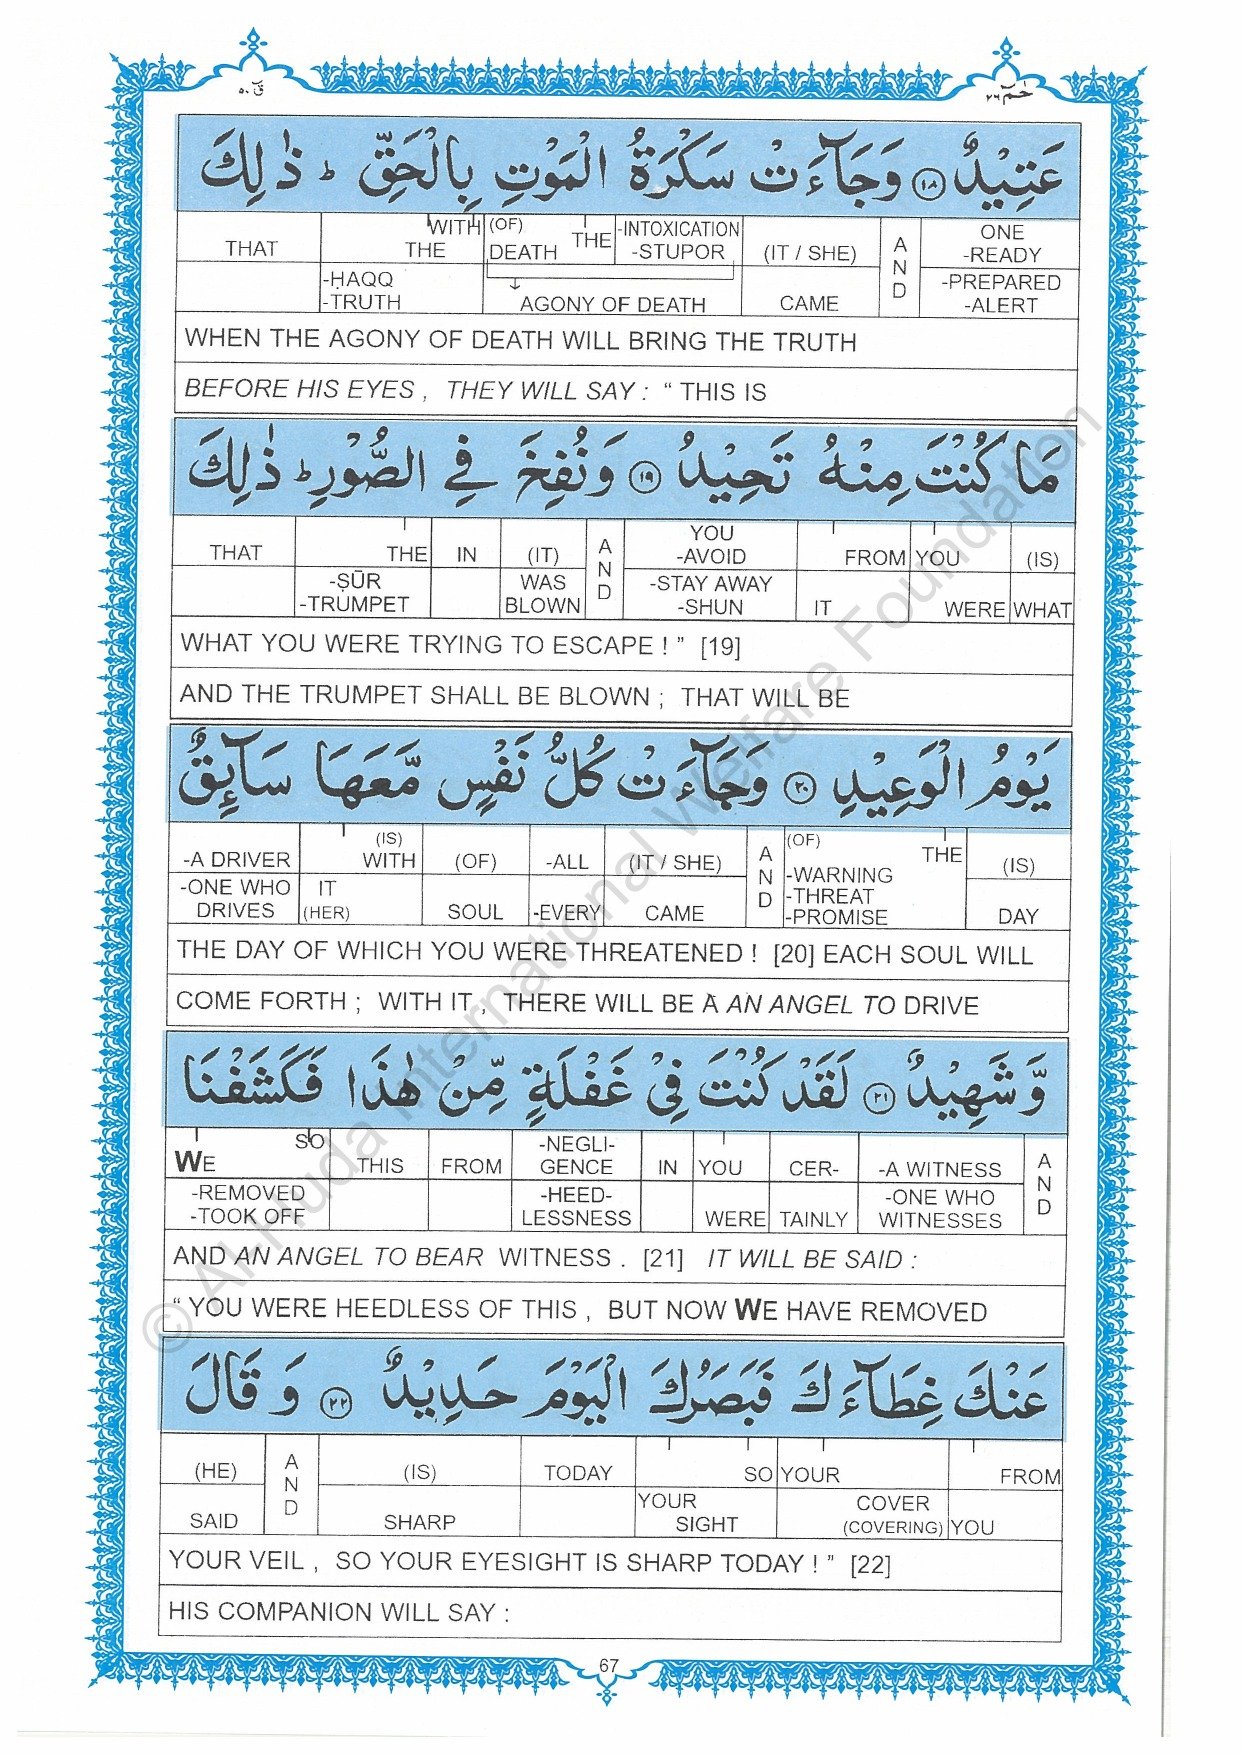 قٓ ٥٠
حٰمٓ ٢٦
عَتِيْدٌ ١٨ وَجَآءَتْ سَكْرَةُ الْمَوْتِ بِالْحَقِّ ؕ ذٰلِكَ
THAT WITH THE (OF) DEATH THE -INTOXICATION -STUPOR (IT / SHE) AND ONE -READY
-ḤAQQ -TRUTH AGONY OF DEATH CAME -PREPARED -ALERT
WHEN THE AGONY OF DEATH WILL BRING THE TRUTH
BEFORE HIS EYES , THEY WILL SAY : “ THIS IS
مَا كُنْتَ مِنْهُ تَحِيْدُ ١٩ وَنُفِخَ فِي الصُّوْرِ ؕ ذٰلِكَ
THAT THE IN (IT) AND YOU -AVOID FROM YOU (IS)
-ṢŪR -TRUMPET WAS BLOWN -STAY AWAY -SHUN IT WERE WHAT
WHAT YOU WERE TRYING TO ESCAPE ! ” [19]
AND THE TRUMPET SHALL BE BLOWN ; THAT WILL BE
يَوْمُ الْوَعِيْدِ ٢٠ وَجَآءَتْ كُلُّ نَفْسٍ مَّعَهَا سَآئِقٌ
-A DRIVER (IS) WITH (OF) -ALL (IT / SHE) AND (OF) THE -WARNING (IS)
-ONE WHO DRIVES IT (HER) SOUL -EVERY CAME -THREAT -PROMISE DAY
THE DAY OF WHICH YOU WERE THREATENED ! [20] EACH SOUL WILL
COME FORTH ; WITH IT , THERE WILL BE A AN ANGEL TO DRIVE
وَّشَهِيْدٌ ٢١ لَقَدْ كُنْتَ فِيْ غَفْلَةٍ مِّنْ هٰذَا فَكَشَفْنَا
WE SO THIS FROM -NEGLI- GENCE IN YOU CER- -A WITNESS AND
-REMOVED -TOOK OFF -HEED- LESSNESS WERE TAINLY -ONE WHO WITNESSES
AND AN ANGEL TO BEAR WITNESS . [21] IT WILL BE SAID :
“ YOU WERE HEEDLESS OF THIS , BUT NOW WE HAVE REMOVED
عَنْكَ غِطَآءَكَ فَبَصَرُكَ الْيَوْمَ حَدِيْدٌ ٢٢ وَقَالَ
(HE) AND (IS) TODAY SO YOUR FROM
SAID SHARP YOUR SIGHT COVER (COVERING) YOU
YOUR VEIL , SO YOUR EYESIGHT IS SHARP TODAY ! ” [22]
HIS COMPANION WILL SAY :
67
© Al Huda International Welfare Foundation